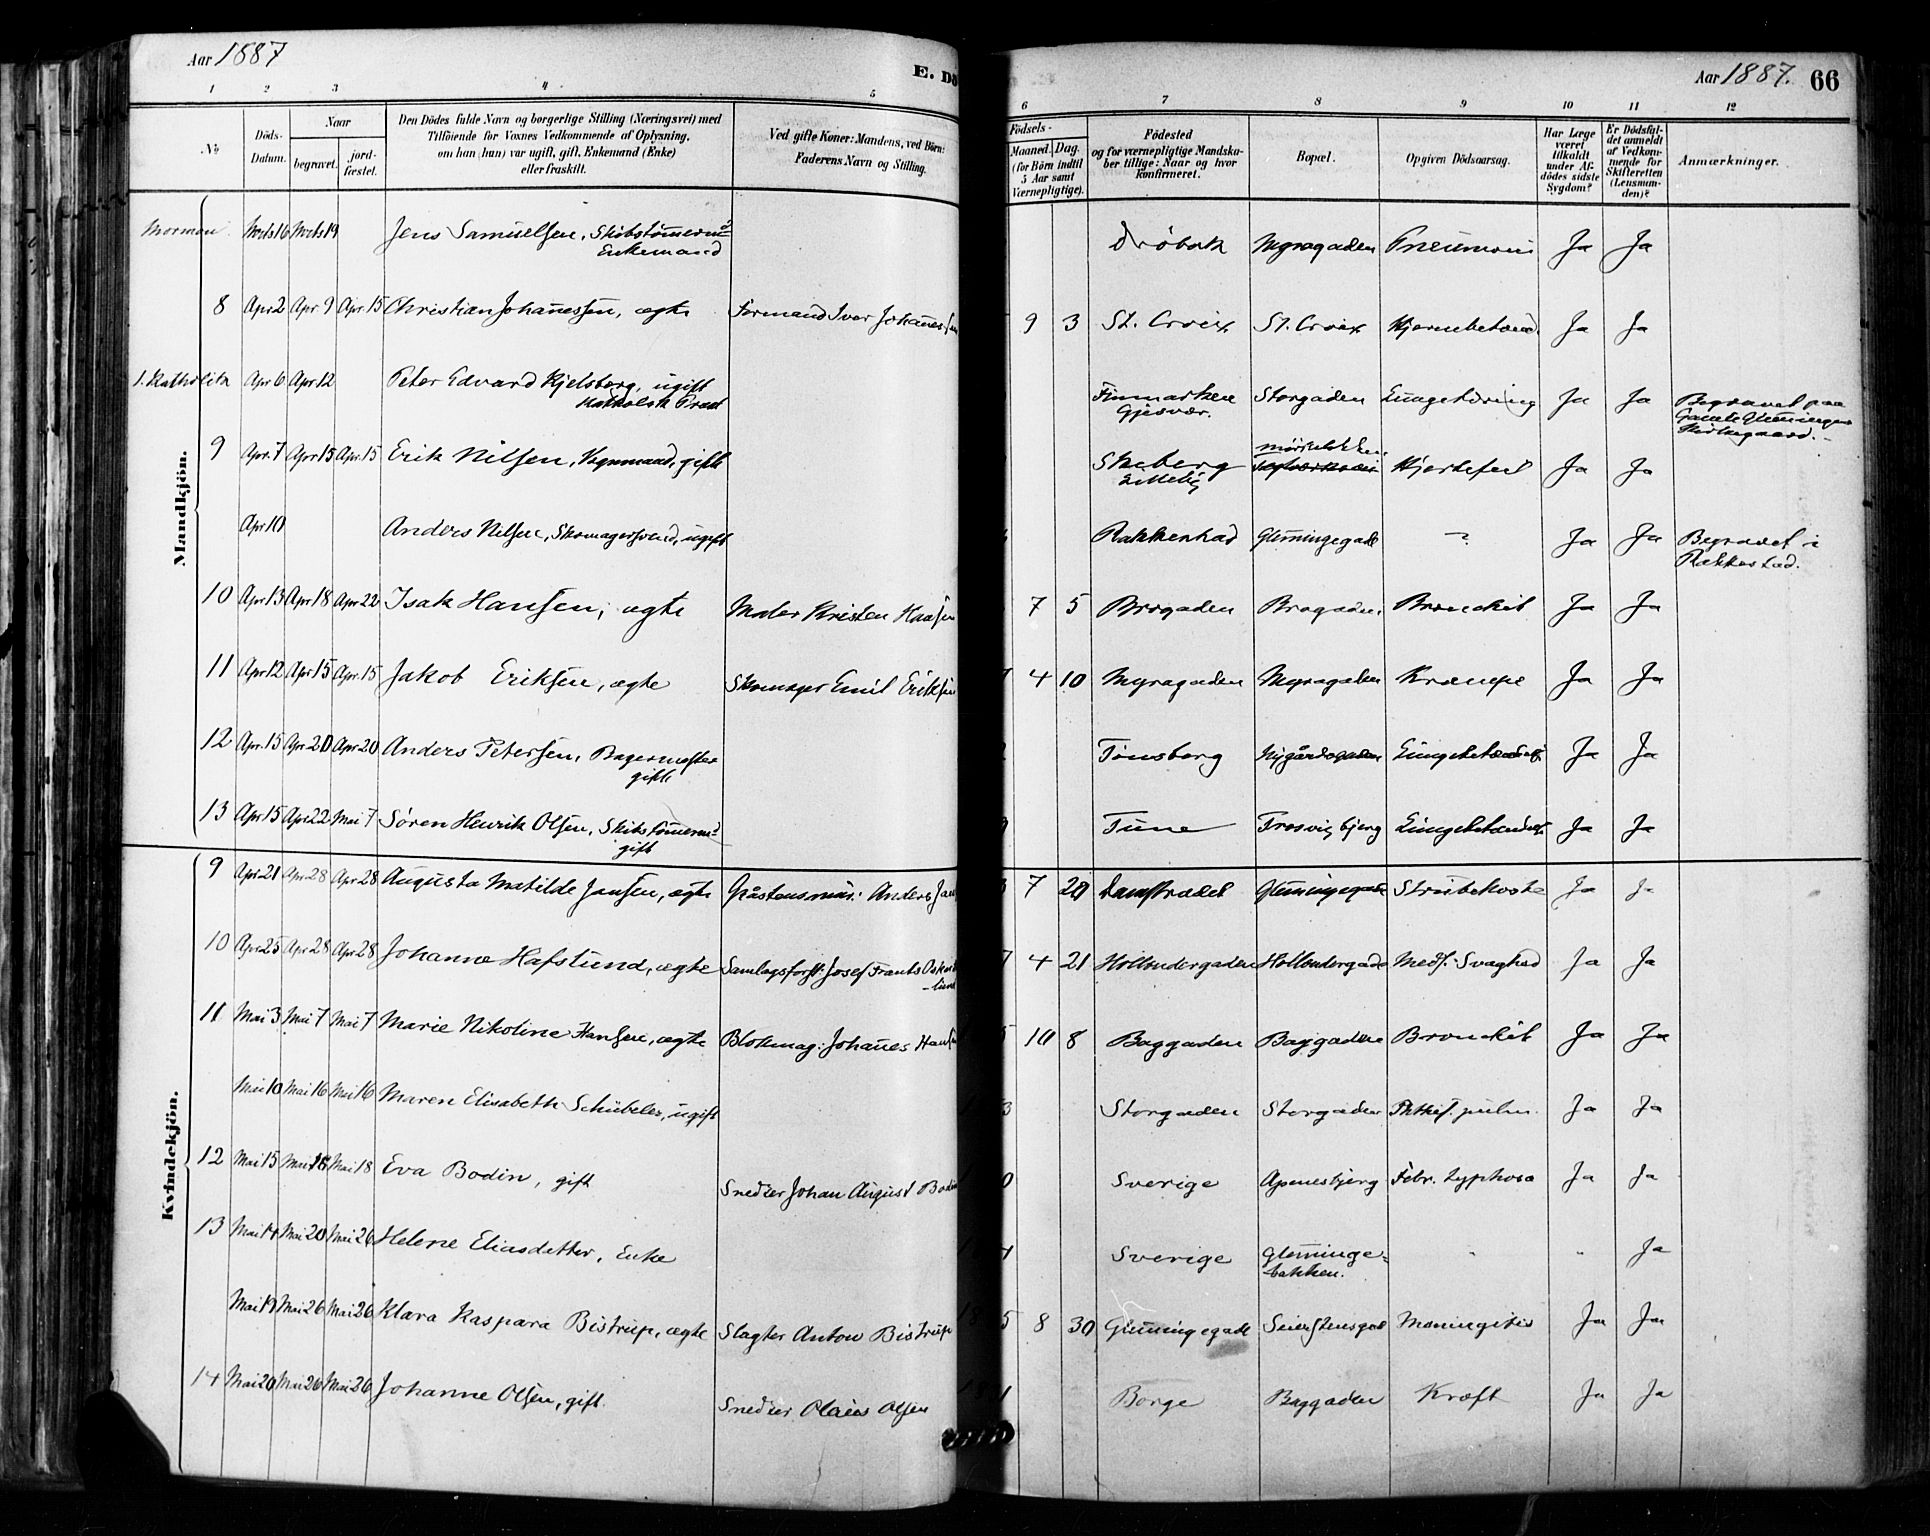 Aar 1887
E. Dö
Aar 1887. 66
1 2 3 4 5 6 7 8 9 10 11 12
No
Döds-Datum.
Naar
begravet.
jord-fæstet.
Den Dödes fulde Navn og borgerlige Stilling (Næringsvei) med
Tilföiende for Voxnes Vedkommende af Oplysning,
om han (hun) var ugift, gift, Enkemand (Enke)
eller fraskilt.
Ved gifte Koner: Mandens, ved Börn:
Faderens Navn og Stilling.
Födsels-
Maaned. Dag.
(for Börn indtil
5 Aar samt
Værnepligtige).
Födested
og for værnepligtige Mandska-
ber tillige: Naar og hvor
konfirmeret.
Bopæl.
Opgiven Dödsaarsag.
Har Læge
været
tilkaldt
under Af-
dödes sidste
Sygdom?
Er Dödsfal-
det anmeldt
af Vedkom-
mende for
Skifteretten
(Lensman-
den)?
Anmærkninger.
Mandkjön.
Mormon. Marts 16 Marts 19 Jens Samuelsen, Enkemand Drøbak Myragaden Pneumoni Ja Ja
8 Apr 2 Apr 9 Apr. 15 Christian Johanessen, ægte Formand Iver Johanessen 9 3 St. Croix St. Croix Hjernebetænd. Ja Ja
1. Katholik Apr 6 Apr 12 Peter Edvard Kjelsberg, ugift
Katholsk Præst Finmarken
Gjesvær. Storgaden Lungetæring Ja Ja Begravet paa
Gamle Glemminge
Kirkegaard.
9 Apr. 7 Apr 15 Apr. 15 Erik Nilsen, Vognmand, gift Skeberg Hjertefeil Ja Ja
Apr 10 Anders Nilsen, Skomagersvend, ugift Rakkestad Glemmingegade - Ja Ja Begravet i
Rakkestad.
10 Apr 13 Apr 18 Apr 22 Isak Hansen, ægte Maler Kristen Hansen 7 5 Brogaden Brogaden Bronchit Ja Ja
11 Apr 12 Apr 15 Apr. 15 Jakob Eriksen, ægte Skomager Emil Eriksen 4 10 Myragaden Myragaden Krampe Ja Ja
12 Apr. 15 Apr 20 Apr 20 Anders Petersen, Bagermester
gift Tønsberg Nygårdsgaden Lungebetændelse Ja Ja
13 Apr 15 Apr 22 Mai 7 Søren Henrik Olsen, Skibstømmerm.
gift Tune Trosvigbjerg Lungebetændelse Ja Ja
Kvindekjön.
9 Apr 21 Apr 28 Apr 28 Augusta Matilde Jansen, ægte Gråstensmur. Anders Jan 7 20 Damstrædet Glemmingegade Strubehoste Ja Ja
10 Apr 25 Apr 28 Apr 28 Johanne Hafslund, ægte Samlagsforst. Josef Frants Oskar 4 21 Hollendergaden Hollendergade Medf. Svaghed Ja Ja
11 Mai 3 Mai 7 Mai 7 Marie Nikoline Hansen, ægte Blokmag. Johanes Han 10 8 Baggaden Baggaden Bronchit Ja Ja
Mai 10 Mai 16 Mai 16 Maren Elisabeth Schübeler, ugift 3 Storgaden Storgaden Phthis. pulm. Ja Ja
12 Mai 15 Mai 18 Mai 18 Eva Bodin, gift Snedker Johan August Bodin 0 Sverige Apenesbjerg Febr. typhosa Ja Ja
13 Mai 14 Mai 20 Mai 26 Helene Eliasdatter, Enke Sverige Glemminge-
bakken. " " Ja
Mai 19 Mai 26 Mai 26 Klara Kaspara Bistrup, ægte Slagter Anton Bistrup 5 8 30 Glemmingegade Meningitis Ja Ja
14 Mai 20 Mai 26 Mai 26 Johanne Olsen, gift. Snedker Olaus Olsen 1 Borge Baggaden Kræft Ja Ja